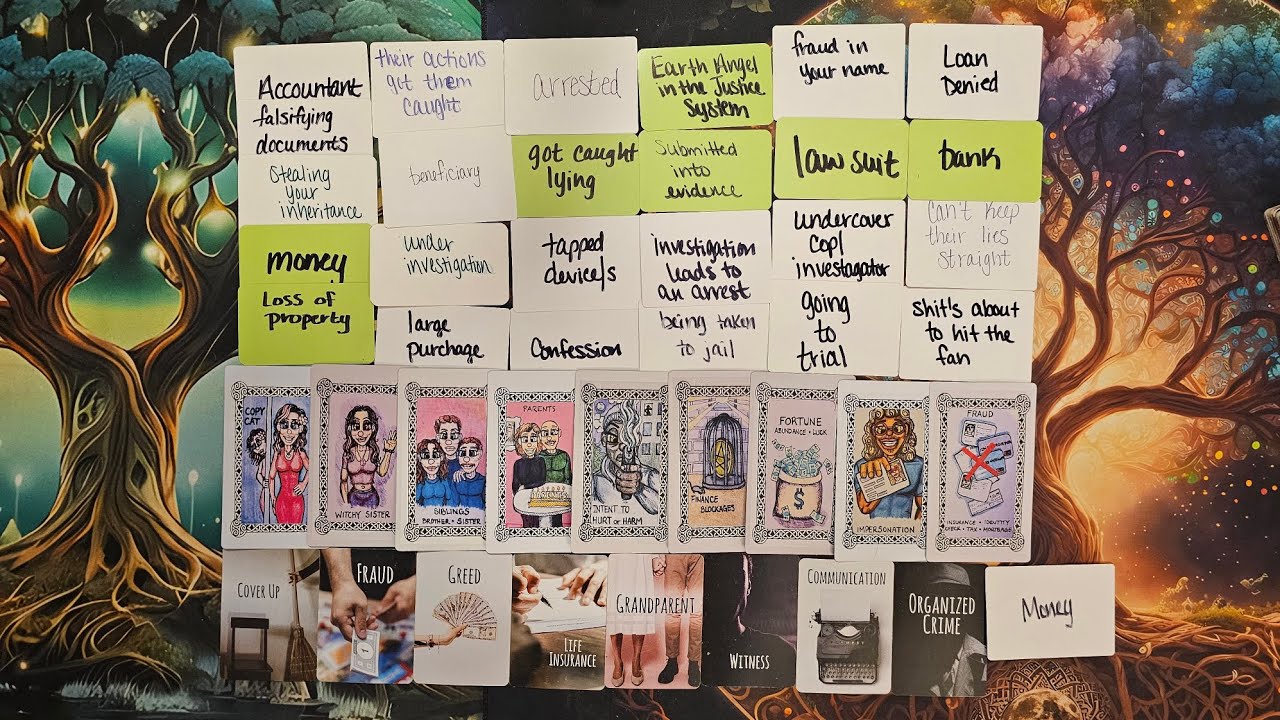 Accountant
falsifying
documents
their actions
got them
caught
arrested
Earth Angel
in the Justice
System
fraud in
your name
Loan
Denied
Stealing
your
inheritance
beneficiary
got caught
lying
Submitted
into
evidence
law suit
bank
money
under
investigation
tapped
device/s
investigation
leads to
an arrest
undercover
cop/
investagator
Can't keep
their lies
straight
Loss of
property
large
purchage
Confession
being taken
to jail
going
to
trial
Shit's about
to hit the
fan
COPY
CAT
WITCHY SISTER
SIBLINGS
BROTHER + SISTER
PARENTS
INTENT TO
HURT or HARM
FINANCE
BLOCKAGES
FORTUNE
ABUNDANCE + LUCK
$
IMPERSONATION
FRAUD
INSURANCE + IDENTITY
CHECK + TAX + MORTGAGE
COVER UP
FRAUD
GREED
LIFE
INSURANCE
GRANDPARENT
WITNESS
COMMUNICATION
ORGANIZED
CRIME
Money